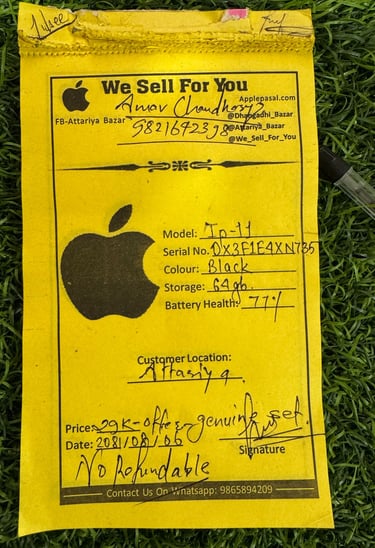 We Sell For You
Applepasal.com
Amar Chaudhary
@Dhangadhi_Bazar
FB-Attariya Bazar
@Attariya_Bazar
9821642398
@We_Sell_For_You
Model: Ip-11
Serial No. DX3F1E4XN735
Colour: Black
Storage: 64gb
Battery Health: 77%
Customer Location:
Attariya
Price: 29k-offer genuine set.
Date: 2081/08/06
Signature
No Refundable
Contact Us On Whatsapp: 9865894209